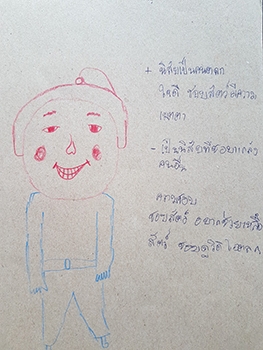 + นิสัยเป็นคนตลก
ใจดี ชอบสัตว์มีความ
เมตตา
- เป็นนิสัยที่ชอบแกล้ง
คนอื่น
ความชอบ
ชอบสัตว์ อยากช่วยเหลือ
สัตว์ ชอบดูวิดีโอตลก